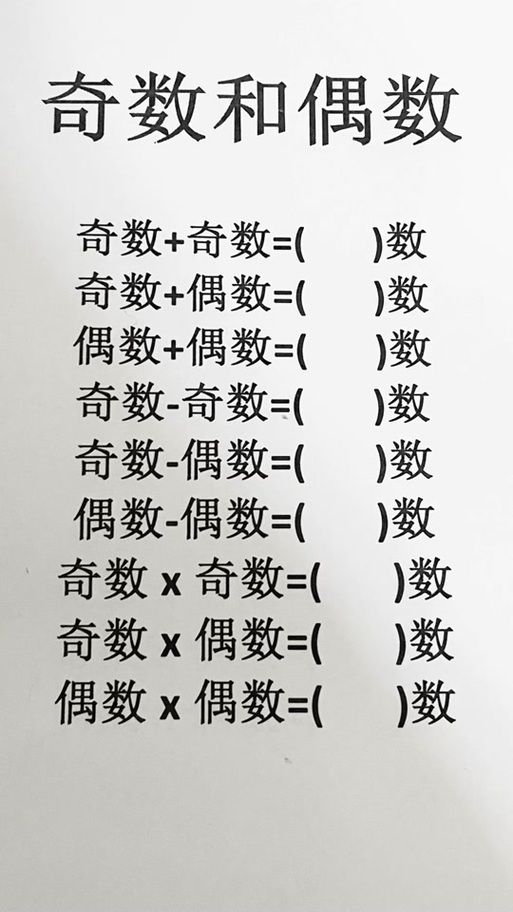 奇数和偶数
奇数+奇数=(      )数
奇数+偶数=(      )数
偶数+偶数=(      )数
奇数-奇数=(      )数
奇数-偶数=(      )数
偶数-偶数=(      )数
奇数 x 奇数=(      )数
奇数 x 偶数=(      )数
偶数 x 偶数=(      )数